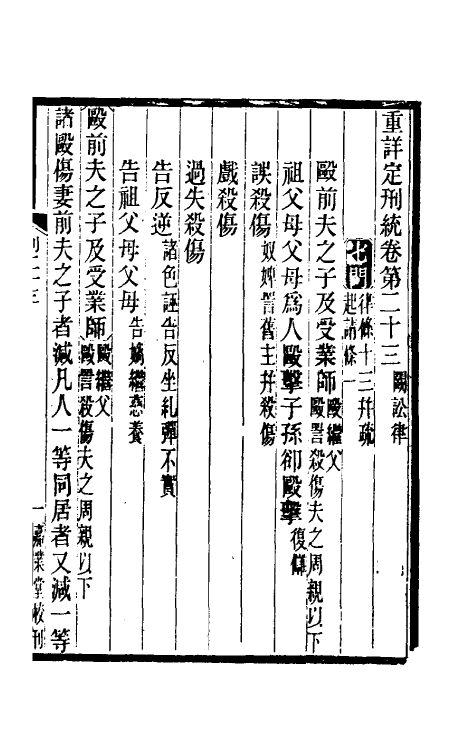 重詳定刑統卷第二十三 鬬訟律
七門 律條十三并疏
起請條一
毆前夫之子及受業師 毆繼父
毆詈殺傷夫之周親以下
祖父母父母為人毆擊子孫卻毆擊 復讎
誤殺傷 奴婢詈舊主并殺傷
戲殺傷
過失殺傷
告反逆 諸色誣告反坐糺彈不實
告祖父母父母 告嫡繼慈養
毆前夫之子及受業師 毆繼父
毆詈殺傷夫之周親以下
諸毆傷妻前夫之子者減凡人一等同居者又減一等
刑二十三
一 嘉業堂校刊